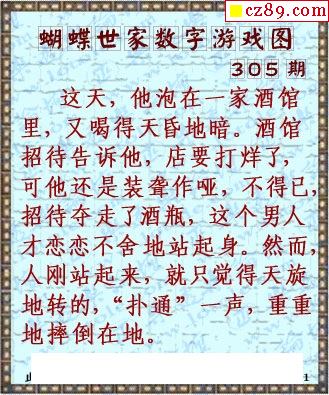 cz89.com
蝴蝶世家数字游戏图
305 期
这天，他泡在一家酒馆
里，又喝得天昏地暗。酒馆
招待告诉他，店要打烊了，
可他还是装聋作哑，不得已，
招待夺走了酒瓶，这个男人
才恋恋不舍地站起身。然而，
人刚站起来，就只觉得天旋
地转的，“扑通”一声，重重
地摔倒在地。